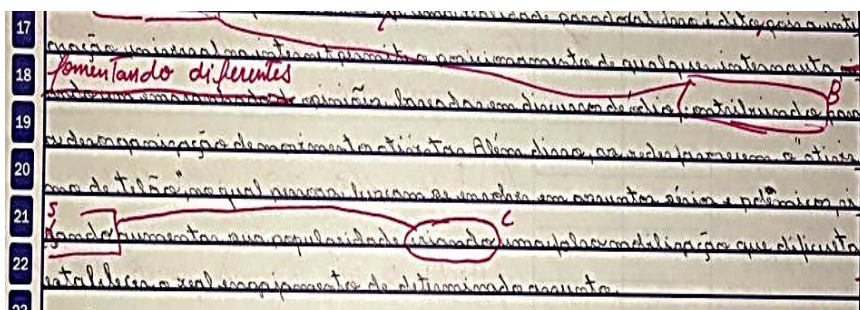 17 uma realidade paradoxal. Isso é dito, pois a inte
ração universal na internet permite o posicionamento de qualquer internauta
18 fomentando diferentes
opinião baseadas em discursos de ódio, contribuindo para B
19 a desorganização de movimentos ativistas. Além disso, as redes favorecem o "ativis
20 mo de telão", no qual pessoas buscam se envolver em assuntos sérios e polêmicos vi
21 S sando aumentar sua popularidade criando uma falsa mobilização que dificulta C
22 estabelecer o real engajamento de determinado assunto.
23